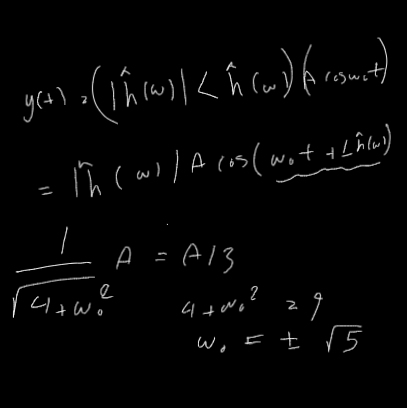 y(t) = (|ĥ(ω)| ∠ ĥ(ω)) (A cos ω₀t)
= |ĥ(ω)| A cos(ω₀t + ∠ĥ(ω))
1/√(4+ω₀²) A = A/3
4+ω₀² = 9
ω₀ = ± √5